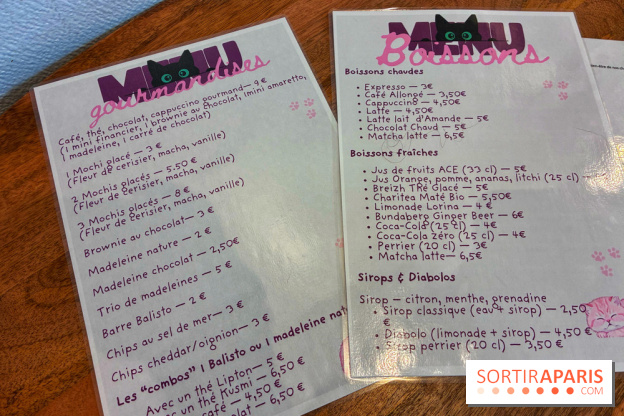 MENU
gourmandises
Café, thé, chocolat, cappuccino gourmand— 9 €
(1 mini financier, 1 brownie au chocolat, 1mini amaretto,
1 madeleine, 1 carré de chocolat)
1 Mochi glacé — 3 €
(Fleur de cerisier, macha, vanille)
2 Mochis glacés — 5.50 €
(Fleur de cerisier, macha, vanille)
3 Mochis glacés — 8 €
(Fleur de cerisier, macha, vanille)
Brownie au chocolat— 3 €
Madeleine nature — 2 €
Madeleine chocolat — 2,50€
Trio de madeleines — 5 €
Barre Balisto — 2 €
Chips au sel de mer— 3 €
Chips cheddar/oignion— 3 €
Les "combos" 1 Balisto ou 1 madeleine
Avec un thé Lipton— 5 €
Avec un thé Kusmi — 6,50 €
café — 4,50 €
6,50 €
MENU
Boissons
Boissons chaudes
• Expresso — 3€
• Café Allongé — 3,50€
• Cappuccino — 4,50€
• Latte — 4,50€
• Latte lait d'Amande — 5€
• Chocolat Chaud — 5€
• Matcha latte — 6,5€
Boissons fraîches
• Jus de fruits ACE (33 cl) — 5€
• Jus Orange, pomme, ananas, litchi (25 cl) —
• Breizh Thé Glacé — 5€
• Charitea Maté Bio — 5,50€
• Limonade Lorina — 4 €
• Bundaberg Ginger Beer — 6€
• Coca-Cola (25 cl) — 4€
• Coca-Cola zéro (25 cl) — 4€
• Perrier (20 cl) — 3€
• Matcha latte— 6,5€
Sirops & Diabolos
Sirop — citron, menthe, grenadine
• Sirop classique (eau + sirop) — 2,50
€
• Diabolo (limonade + sirop) — 4,50 €
• Sirop perrier (20 cl) — 3,50 €
SORTIRAPARIS
.COM